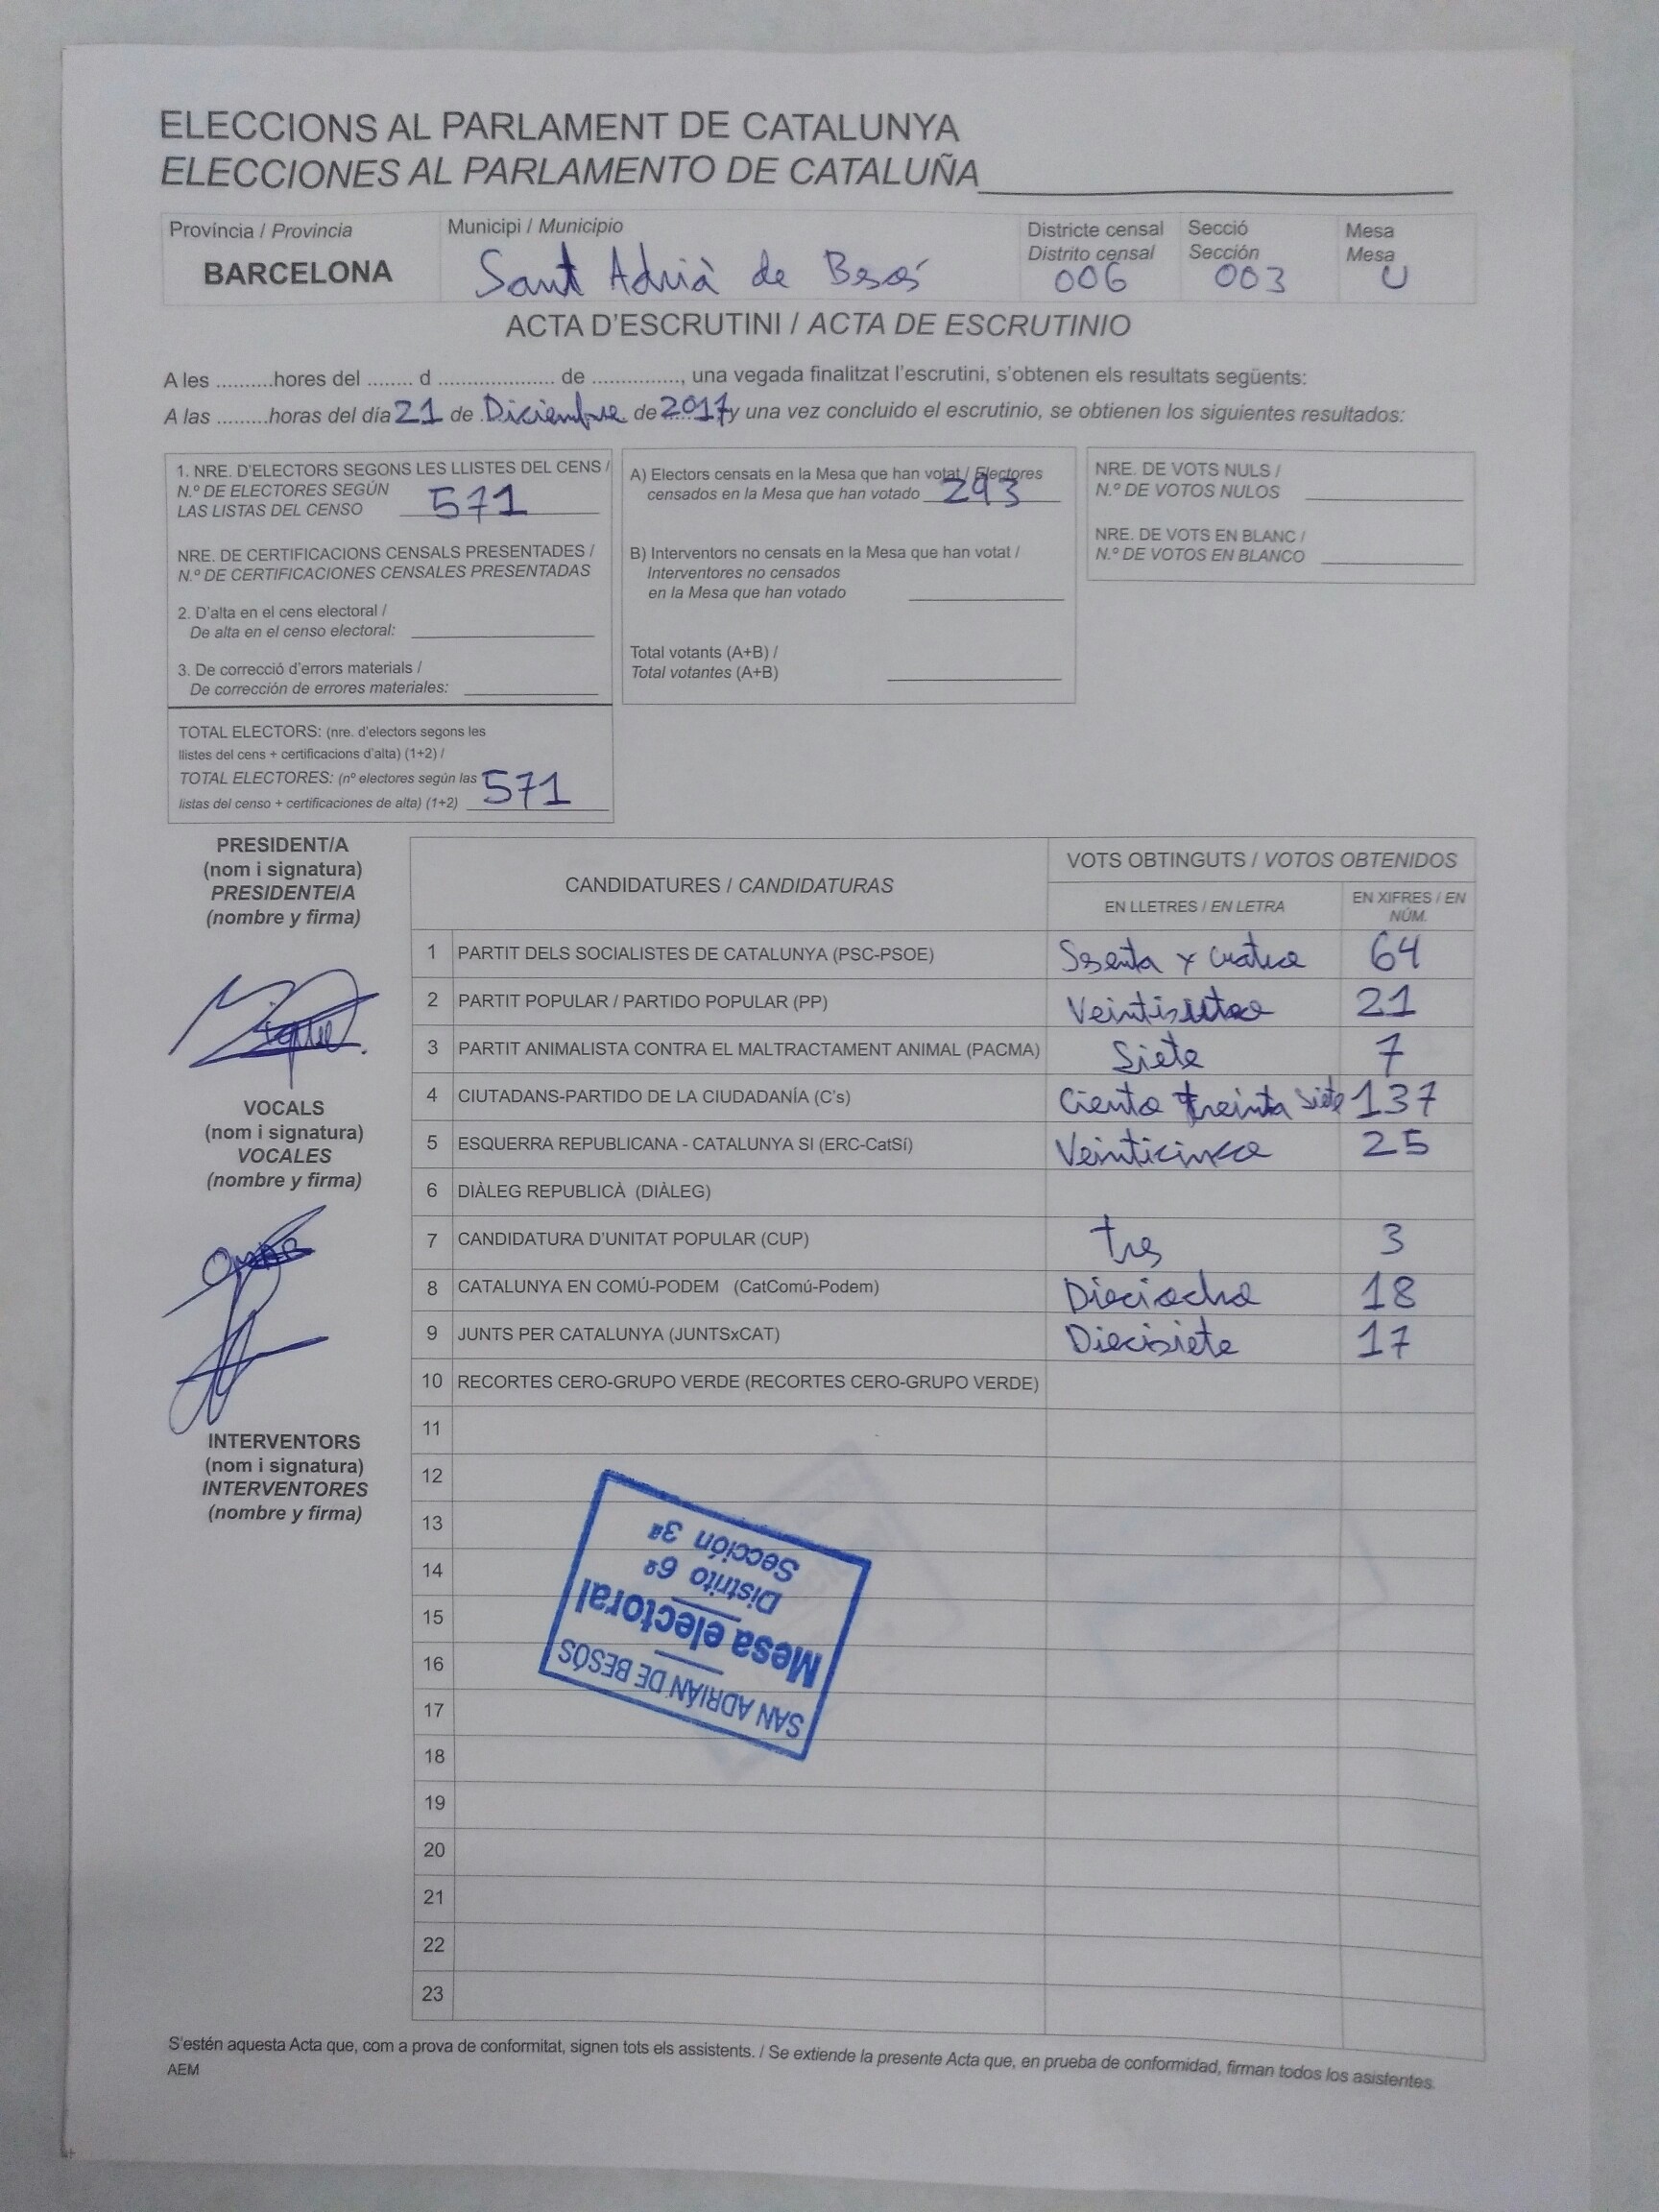 ELECCIONS AL PARLAMENT DE CATALUNYA
ELECCIONES AL PARLAMENTO DE CATALUÑA
Província / Provincia
BARCELONA
Municipi / Municipio
Sant Adrià de Besós
Districte censal
Distrito censal
006
Secció
Sección
003
Mesa
Mesa
U
ACTA D'ESCRUTINI / ACTA DE ESCRUTINIO
A les ..........hores del ........ d ..................... de ................, una vegada finalitzat l'escrutini, s'obtenen els resultats següents:
A las .........horas del día 21 de Diciembre de 2017 y una vez concluido el escrutinio, se obtienen los siguientes resultados:
1. NRE. D'ELECTORS SEGONS LES LLISTES DEL CENS /
N.º DE ELECTORES SEGÚN
LAS LISTAS DEL CENSO 571
NRE. DE CERTIFICACIONS CENSALS PRESENTADES /
N.º DE CERTIFICACIONES CENSALES PRESENTADAS
2. D'alta en el cens electoral /
De alta en el censo electoral:
3. De correcció d'errors materials /
De corrección de errores materiales:
TOTAL ELECTORS: (nre. d'electors segons les
llistes del cens + certificacions d'alta) (1+2) /
TOTAL ELECTORES: (nº electores según las
listas del censo + certificaciones de alta) (1+2) 571
A) Electors censats en la Mesa que han votat / Electores
censados en la Mesa que han votado 293
B) Interventors no censats en la Mesa que han votat /
Interventores no censados
en la Mesa que han votado
Total votants (A+B) /
Total votantes (A+B)
NRE. DE VOTS NULS /
N.º DE VOTOS NULOS
NRE. DE VOTS EN BLANC /
N.º DE VOTOS EN BLANCO
PRESIDENT/A
(nom i signatura)
PRESIDENTE/A
(nombre y firma)
VOCALS
(nom i signatura)
VOCALES
(nombre y firma)
INTERVENTORS
(nom i signatura)
INTERVENTORES
(nombre y firma)
CANDIDATURES / CANDIDATURAS
VOTS OBTINGUTS / VOTOS OBTENIDOS
EN LLETRES / EN LETRA
EN XIFRES / EN
NÚM.
1 PARTIT DELS SOCIALISTES DE CATALUNYA (PSC-PSOE) Ssenta y cuatro 64
2 PARTIT POPULAR / PARTIDO POPULAR (PP) 21
3 PARTIT ANIMALISTA CONTRA EL MALTRACTAMENT ANIMAL (PACMA) Siete 7
4 CIUTADANS-PARTIDO DE LA CIUDADANÍA (C's) Ciento treinta siete 137
5 ESQUERRA REPUBLICANA - CATALUNYA SI (ERC-CatSí) Veinticinco 25
6 DIÀLEG REPUBLICÀ (DIÀLEG)
7 CANDIDATURA D'UNITAT POPULAR (CUP) tres 3
8 CATALUNYA EN COMÚ-PODEM (CatComú-Podem) Dieciocho 18
9 JUNTS PER CATALUNYA (JUNTSxCAT) Diecisiete 17
10 RECORTES CERO-GRUPO VERDE (RECORTES CERO-GRUPO VERDE)
11
12
13
14
15
16
17
18
19
20
21
22
23
SAN ADRIÁN DE BESÓS
Mesa electoral
Distrito 6º
Sección 3ª
S'estén aquesta Acta que, com a prova de conformitat, signen tots els assistents. / Se extiende la presente Acta que, en prueba de conformidad, firman todos los asistentes.
AEM